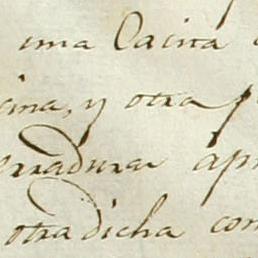 una Casita
cina, y otra p
erradura apr
otra dicha con